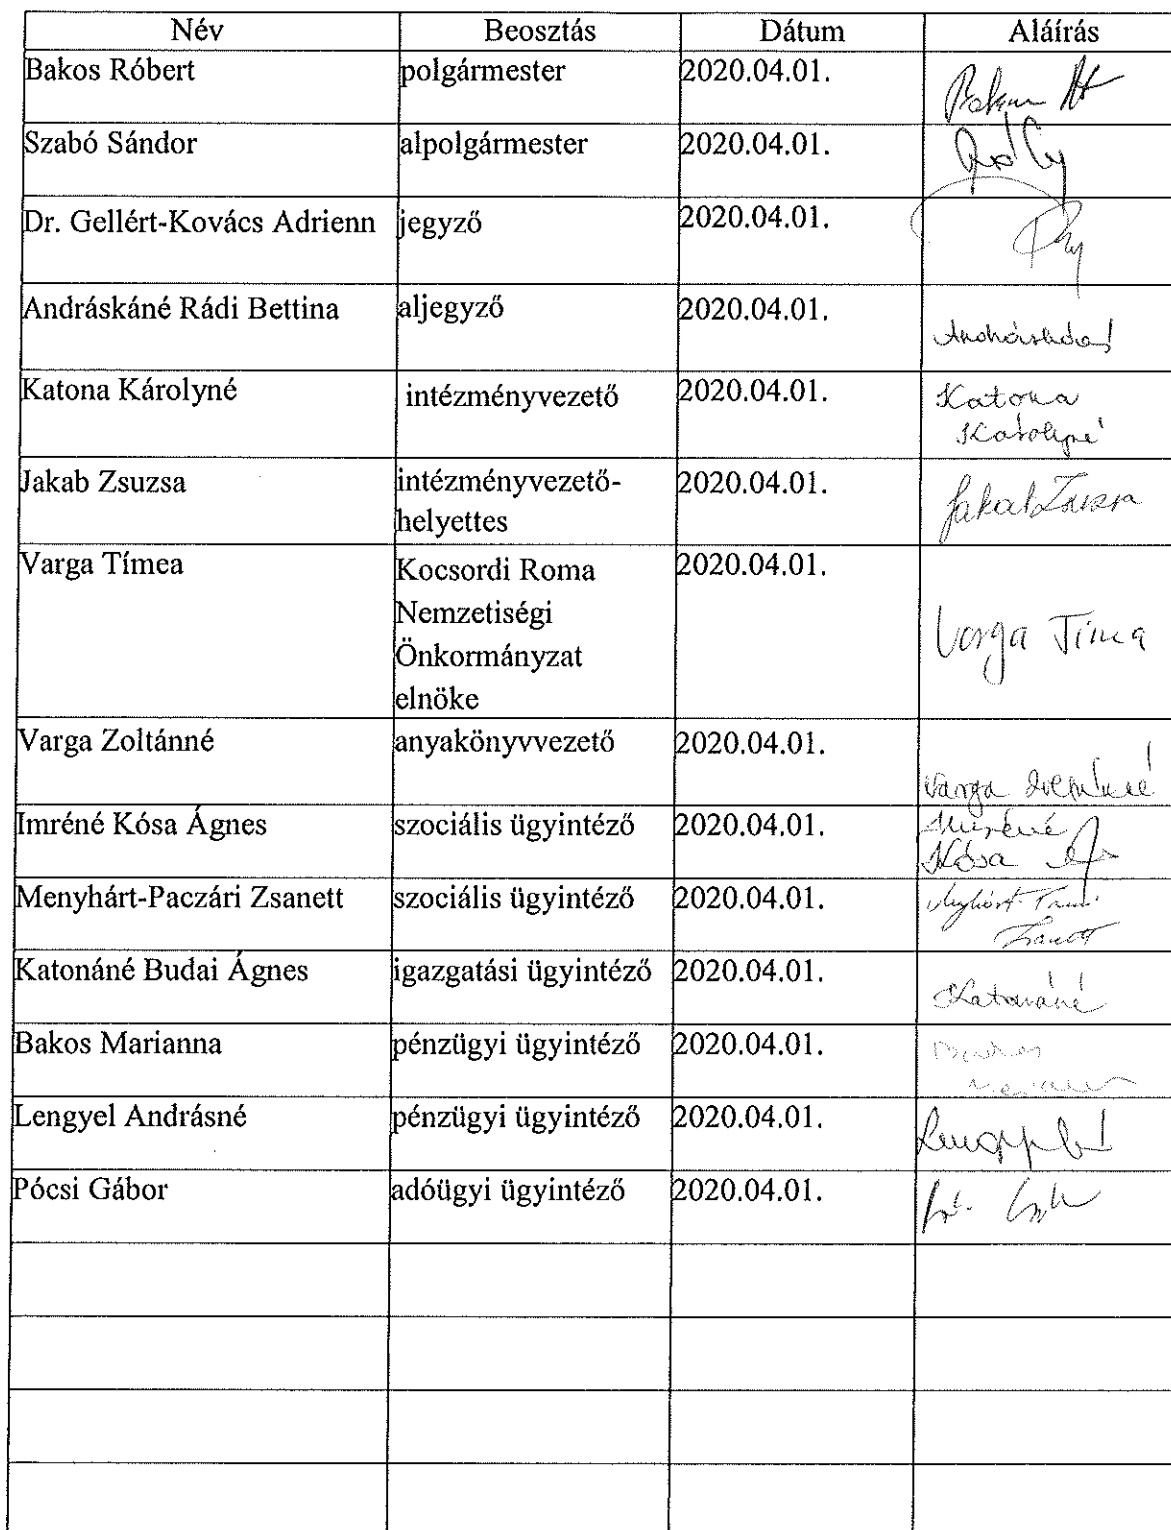 Név Beosztás Dátum Aláírás
Bakos Róbert polgármester 2020.04.01.
Szabó Sándor alpolgármester 2020.04.01.
Dr. Gellért-Kovács Adrienn jegyző 2020.04.01.
Andráskáné Rádi Bettina aljegyző 2020.04.01.
Katona Károlyné intézményvezető 2020.04.01. Katona
Károlyné
Jakab Zsuzsa intézményvezető- 2020.04.01. Jakab Zsuzsa
helyettes
Varga Tímea Kocsordi Roma 2020.04.01.
Nemzetiségi
Önkormányzat Varga Tímea
elnöke
Varga Zoltánné anyakönyvvezető 2020.04.01.
Varga Zoltánné
Imréné Kósa Ágnes szociális ügyintéző 2020.04.01. Imréné
Kósa
Menyhárt-Paczári Zsanett szociális ügyintéző 2020.04.01.
Katonáné Budai Ágnes igazgatási ügyintéző 2020.04.01. Katonáné
Bakos Marianna pénzügyi ügyintéző 2020.04.01.
Lengyel Andrásné pénzügyi ügyintéző 2020.04.01.
Pócsi Gábor adóügyi ügyintéző 2020.04.01.